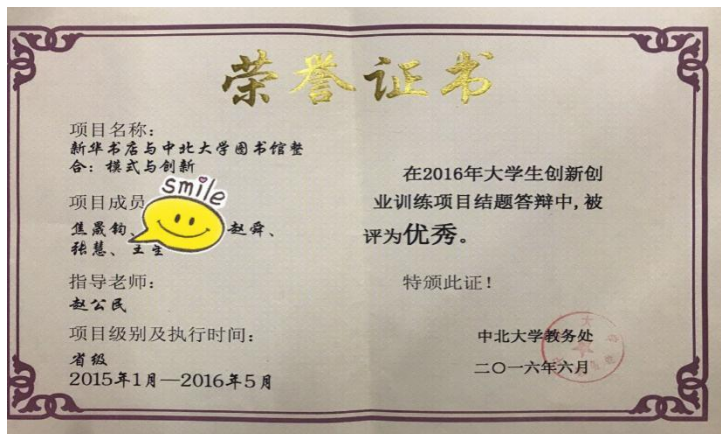 荣誉证书
项目名称：
新华书店与中北大学图书馆整
合：模式与创新
项目成员
smile
焦晟钧、 赵舜、
张慧、王
指导老师：
赵公民
项目级别及执行时间：
省级
2015年1月—2016年5月
在2016年大学生创新创
业训练项目结题答辩中,被
评为优秀。
特颁此证！
中北大学教务处
二〇一六年六月